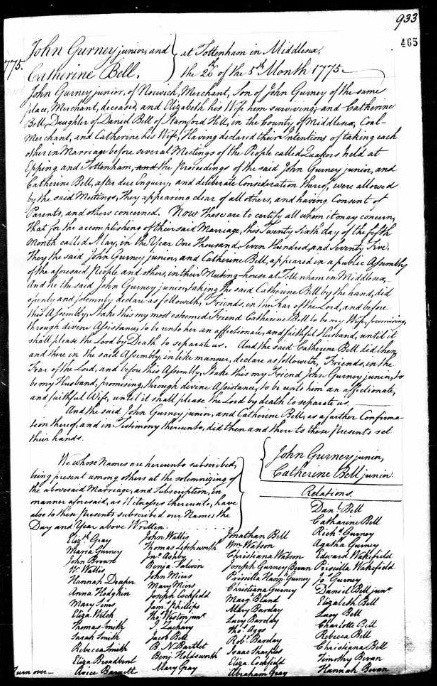 933
465
1775.
John Gurney junior, and
Catherine Bell.
at Tottenham in Middlesex,
the 26th of the 5th Month 1775.
John Gurney junior, of Norwich, Merchant, Son of John Gurney of the same
Place, Merchant, deceased, and Elizabeth his Wife him surviving; and Catherine
Bell, Daughter of Daniel Bell of Stamford Hill, in the County of Middlesex, Coal-
Merchant, and Catherine his Wife, Having declared their Intentions of taking each
other in Marriage before several Meetings of the People called Quakers held at
Epping and Tottenham, and the Proceedings of the said John Gurney junior, and
Catherine Bell, after due Enquiry and deliberate Consideration thereof, were allowed
by the said Meetings, they appearing clear of all others, and having Consent of
Parents, and others concerned. Now these are to certify all whom it may concern,
that for the accomplishing of their said Marriage, this Twenty Sixth day of the fifth
Month called May, in the Year One Thousand, Seven Hundred, and Seventy Five,
They the said John Gurney junior, and Catherine Bell, appeared in a public Assembly
of the aforesaid People and others, in their Meeting-house at Tottenham in Middlesex,
And he the said John Gurney junior, taking the said Catherine Bell by the hand, did
openly and solemnly declare as followeth, Friends, in the Fear of the Lord, and before
this Assembly, I take this my most esteemed Friend Catherine Bell to be my Wife, promising,
through divine Assistance, to be unto her an affectionate, and faithful Husband, until it
shall please the Lord by Death to separate us. And the said Catherine Bell did then
and there in the said Assembly, in like manner, declare as followeth, Friends, in the
Fear of the Lord, and before this Assembly, I take this my Friend John Gurney junior, to
be my Husband, promising through divine Assistance, to be unto him an affectionate,
and faithful Wife, until it shall please the Lord by death to separate us.
And the said John Gurney junior, and Catherine Bell, as a further Confirma-
tion thereof, and in Testimony thereunto, did then and there to these Presents set
their hands.
John Gurney junior,
Catherine Bell junior.
We whose Names are hereunto subscribed,
being present among others at the solemnizing of
the abovesaid Marriage, and Subscription, in
manner aforesaid, as Witnesses thereunto, have
also to these Presents subscribed our Names, the
Day and Year above Written.
Relations.
Eliz. Gray
Maria Gurney
John Brown
W. Wallis
Hannah Draper
Anna Hodgkin
Mary Sims
Eliza. Welch
Thomas Smith
Sarah Smith
Rebecca Smith
Eliza Broadbent
John Wallis
Mary Mins
Joseph Cockfield
Sam. Phillips
Jacob Bell
Benj. Holdsworth
Mary Gray
Jonathan Bell
Wm. Watson
Christiana Watson
Joseph Gurney Bevan
Christiana Gurney
Marg. Bland
Ally Barclay
Lucy Barclay
Rob. Barclay
Isaac Sharples
Eliza Cockfield
Abraham Gray
Dan. Bell
Catharine Bell
Rich. Gurney
Agatha Gurney
Edward Wakefield
Priscilla Wakefield
Jo. Gurney
Daniel Bell junr.
Elizabeth Bell
Lucy Bell
Charlotte Bell
Rebecca Bell
Christiana Bell
Timothy Bevan
Hannah Bevan
Turn over